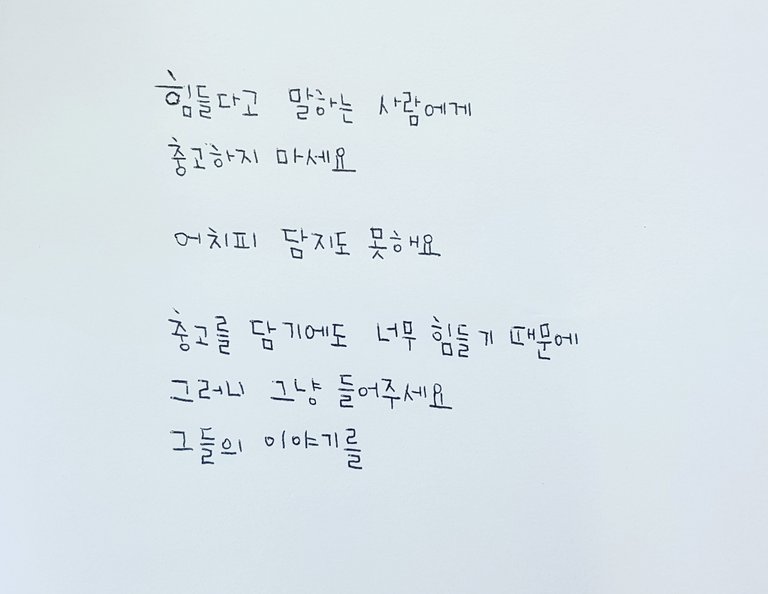 힘들다고 말하는 사람에게
충고하지 마세요
어치피 담지도 못해요
충고를 담기에도 너무 힘들기 때문에
그러니 그냥 들어주세요
그들의 이야기를